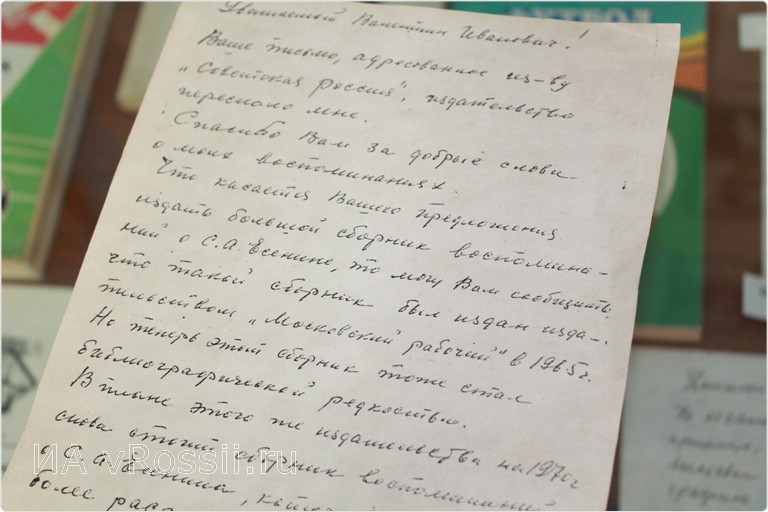 Уважаемый Валентин Иванович!
Ваше письмо, адресованное из-ву
"Советская россия", издательство
переслало мне.
Спасибо Вам за добрые слова
о моих воспоминаниях.
Что касается Вашего предложения
издать большой сборник воспомина-
ний о С.А. Есенине, то могу Вам сообщить,
что такой сборник был издан изда-
тельством "Московский рабочий" в 1965г.
Но теперь этот сборник тоже стал
библиографической редкостью.
В плане этого же издательства на 1970г
снова стоит сборник воспоминаний
о С.А. Есенине,
более
ИА vRossii.ru